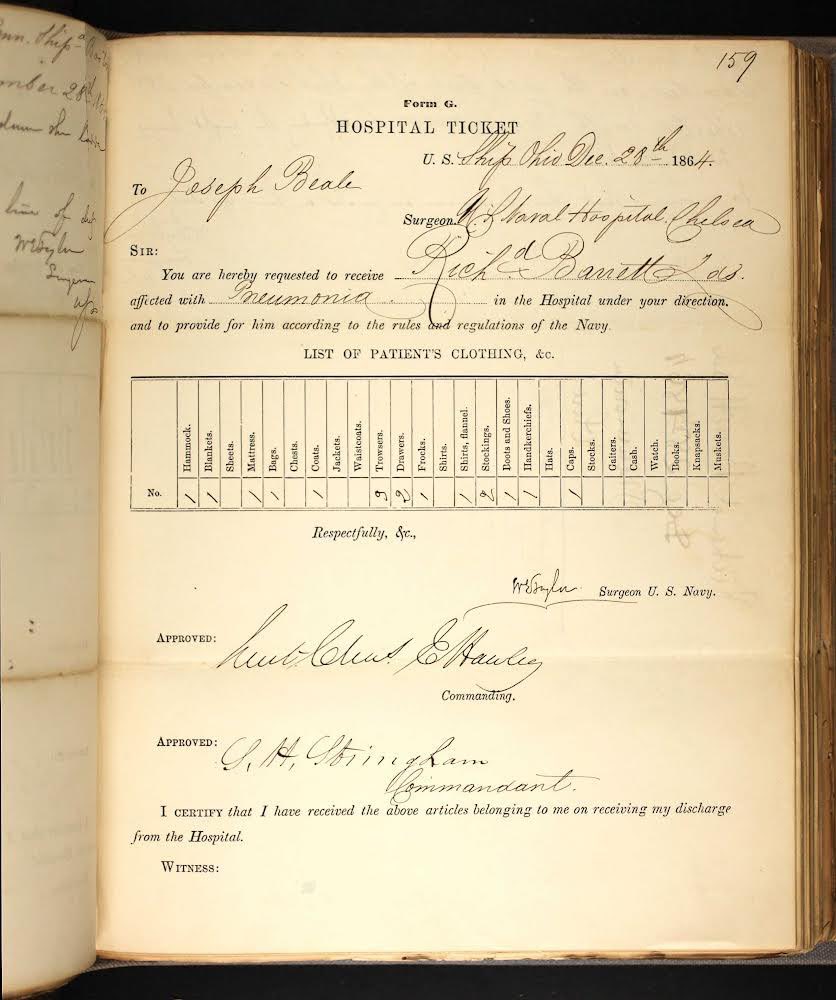 159
Form G.
HOSPITAL TICKET
U. S. Ship Ohio Dec. 28th 1864.
To Joseph Beale
Surgeon U.S. Naval Hospital. Chelsea
SIR:
You are hereby requested to receive Richd Barrett Lds.
affected with Pneumonia. in the Hospital under your direction.
and to provide for him according to the rules and regulations of the Navy.
LIST OF PATIENT'S CLOTHING, &c.
Hammock. Blankets. Sheets. Mattress. Bags. Chests. Coats. Jackets. Waistcoats. Trowsers. Drawers. Frocks. Shirts. Shirts, flannel. Stockings. Boots and Shoes. Handkerchiefs. Hats. Caps. Stocks. Gaiters. Cash. Watch. Books. Knapsacks. Muskets.
No. 1 1 1 1 1 3 2 1 1 2 1 1 1
Respectfully, &c.,
Surgeon U. S. Navy.
APPROVED:
E Hawley
Commanding.
APPROVED: S. H. Stringham
Commandant.
I CERTIFY that I have received the above articles belonging to me on receiving my discharge
from the Hospital.
WITNESS: